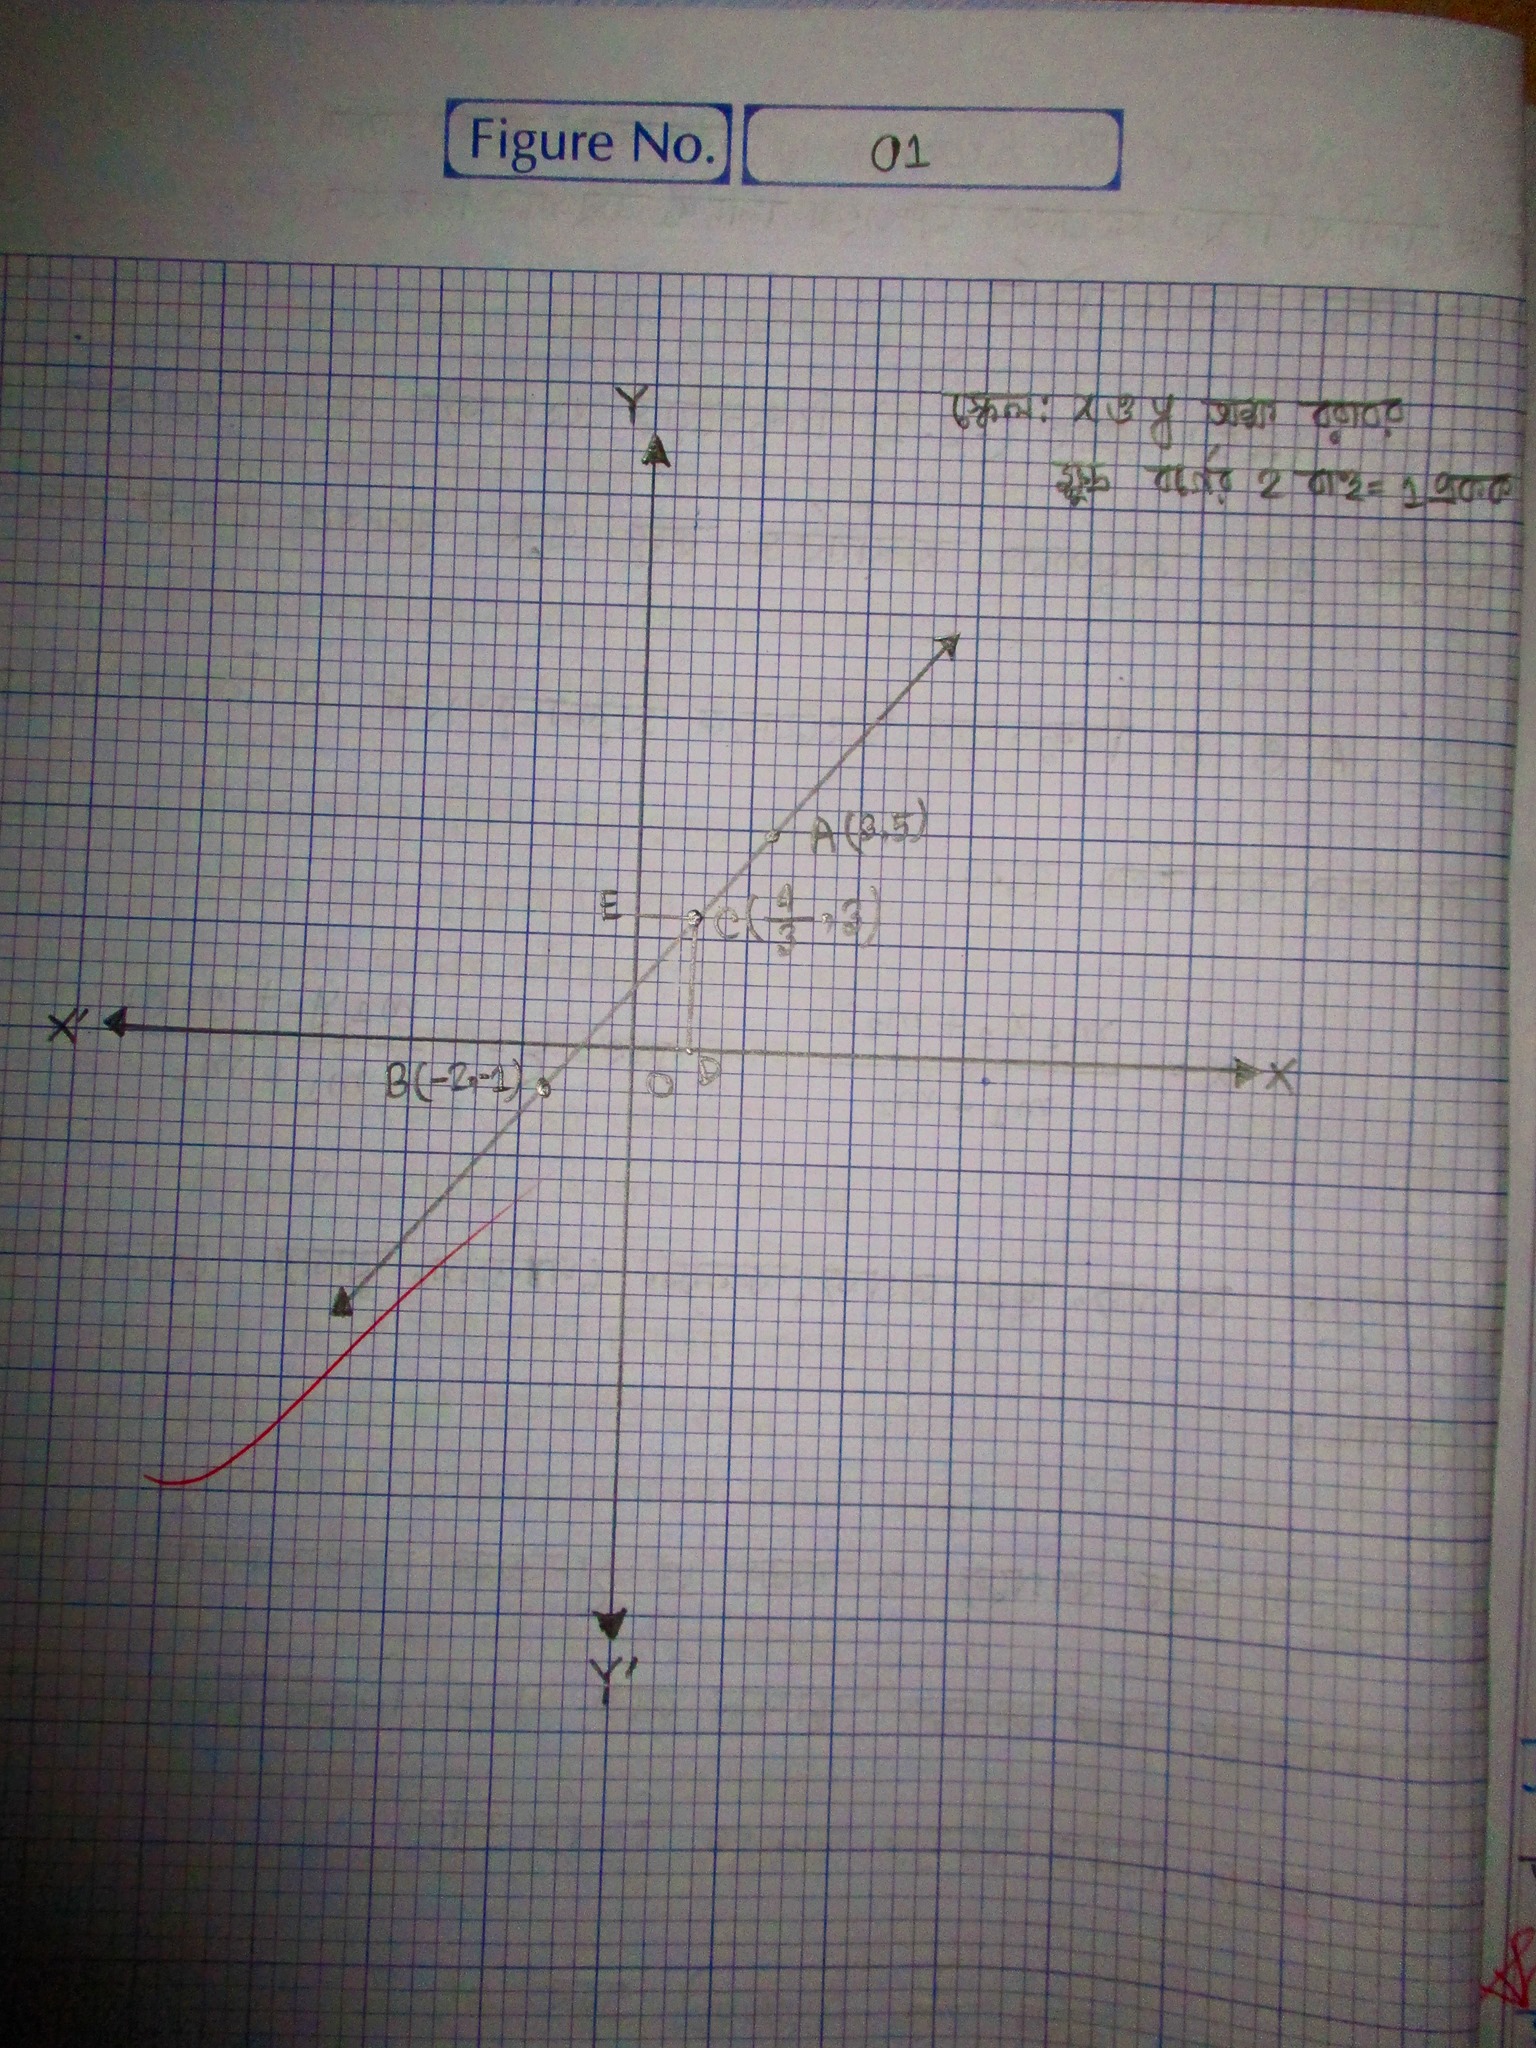 Figure No. 01
Y
স্কেল: X ও Y অক্ষ বরাবর
ক্ষুদ্র বর্গের 2 বাহু = 1 একক
A(3,5)
E
C(4/3, 3)
X'
X
B(-2,-1)
O
D
Y'